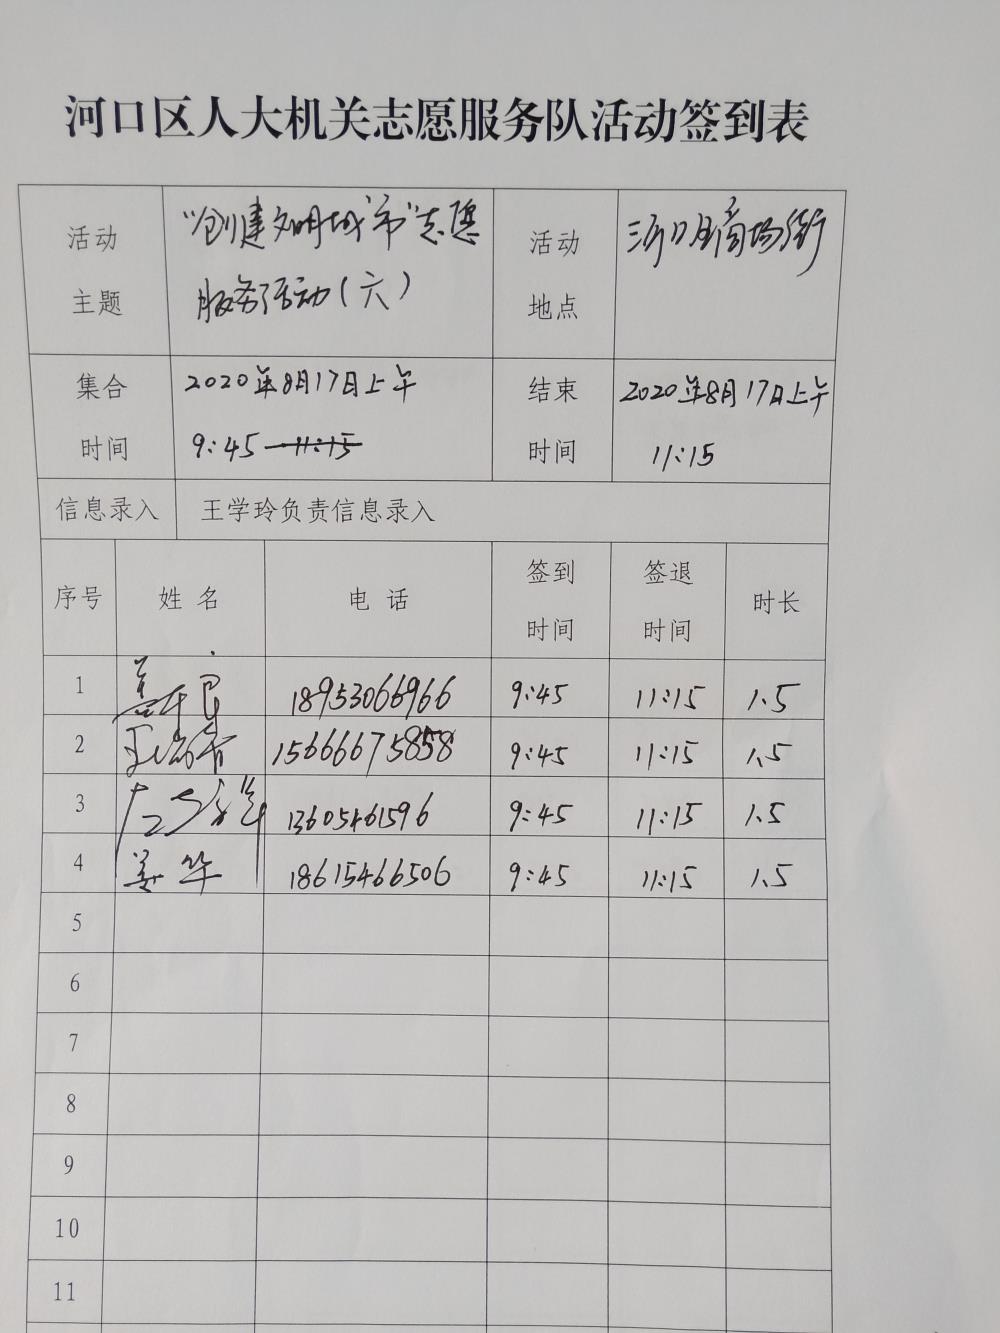 河口区人大机关志愿服务队活动签到表
活动
主题
"创建文明城市"志愿
服务活动(六)
活动
地点
河口商场街
集合
时间
2020年8月17日上午
9:45 11:15
结束
时间
2020年8月17日上午
11:15
信息录入 王学玲负责信息录入
序号 姓名 电话 签到时间 签退时间 时长
1 18953066966 9:45 11:15 1.5
2 15666675858 9:45 11:15 1.5
3 13605461596 9:45 11:15 1.5
4 姜华 18615466506 9:45 11:15 1.5
5
6
7
8
9
10
11